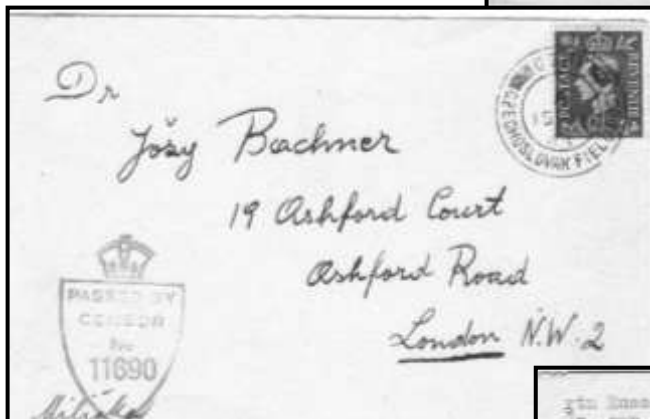 Dr
Jožy Bachner
19 Ashford Court
Ashford Road
London N.W. 2
CZECHOSLOVAK FIEL
PASSED BY
CENSOR
No
11690